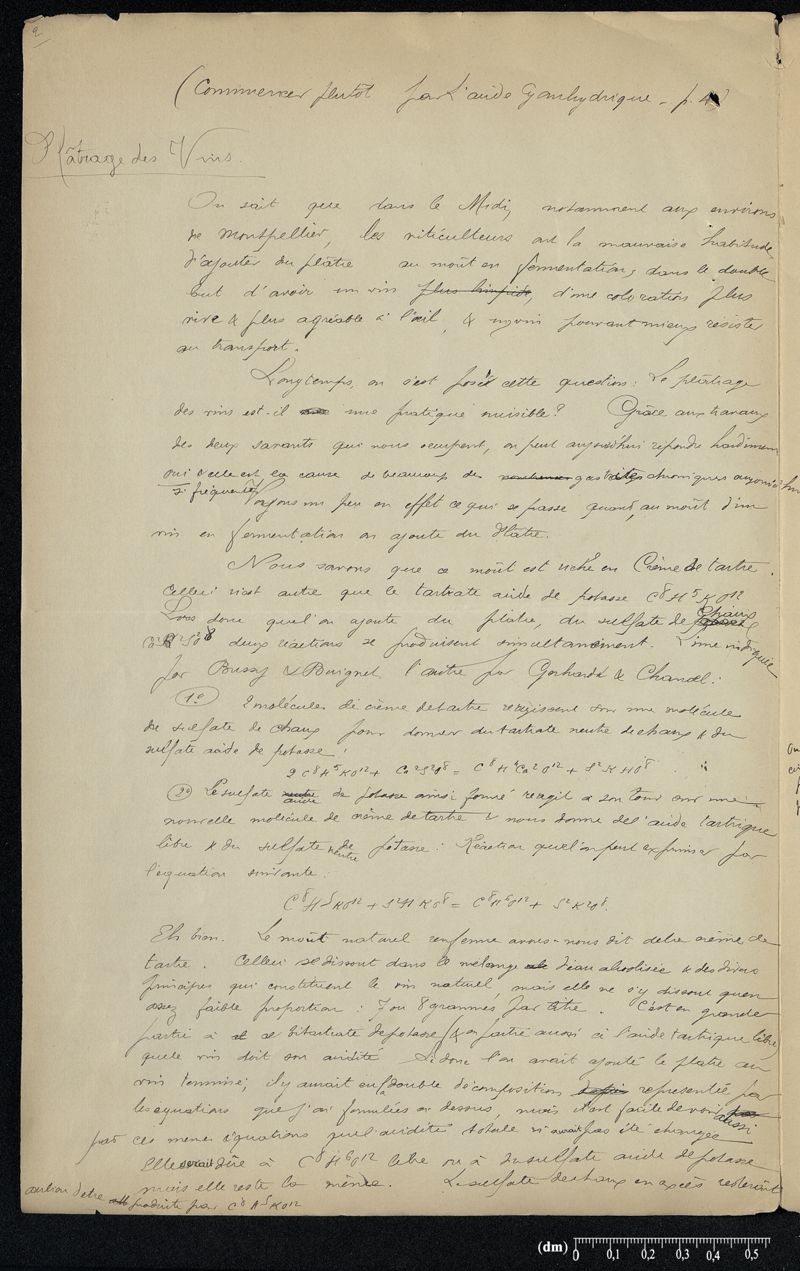 2
(Commencer plutôt par l'acide cyanhydrique - p. 4)
Plâtrage des Vins.
On sait que dans le Midi, notamment aux environs
de Montpellier, les viticulteurs ont la mauvaise habitude
d'ajouter du plâtre au moût en fermentation, dans le double
but d'avoir un vin plus limpide, d'une coloration plus
vive & plus agréable à l'œil, & un vin pouvant mieux résister
au transport.
Longtemps, on s'est posé cette question : Le plâtrage
des vins est-il une pratique nuisible ? Grâce aux travaux
des deux savants qui nous occupent, on peut aujourd'hui répondre hardiment
oui & elle est la cause de beaucoup de gastrites chroniques aujourd'hui
si fréquentes. Voyons un peu en effet ce qui se passe quand, au moût d'un
vin en fermentation on ajoute du Plâtre.
Nous savons que ce moût est riche en Crème de tartre.
Celleci n'est autre que le tartrate acide de potasse C8H5KO12
Lors donc qu'on ajoute du plâtre, du sulfate de chaux
deux réactions se produisent simultanément. L'une indiquée
par Bussy & Buignet l'autre par Gerhardt & Chancel :
1º 2 molécules de crème de tartre réagissent sur une molécule
de sulfate de chaux pour donner du tartrate neutre de chaux & du
sulfate acide de potasse :
2 C8H5KO12 + Ca2S2O8 = C8H4Ca2O12 + S2KHO8
2º Le sulfate acide de potasse ainsi formé réagit à son tour sur une
nouvelle molécule de crème de tartre & nous donne de l'acide tartrique
libre & du sulfate neutre de potasse : Réaction que l'on peut exprimer par
l'équation suivante :
C8H5KO12 + S2HKO8 = C8H6O12 + S2K2O8.
Eh bien. Le moût naturel renferme avons-nous dit de la crème de
tartre. Celleci se dissout dans le mélange d'eau alcoolisée & des divers
principes qui constituent le vin naturel, mais elle ne s'y dissout qu'en
assez faible proportion : 7 ou 8 grammes par litre. C'est en grande
partie à ce bitartrate de potasse (& en partie aussi à l'acide tartrique libre)
que le vin doit son acidité. Si donc l'on avait ajouté le plâtre au
vin terminé, il y aurait eu double décomposition représentée par
les équations que j'ai formulées ci dessus, mais il est facile de voir aussi
par ces mêmes équations que l'acidité totale n'aurait pas été changée
Elle serait dûe à C8H6O12 libre ou à du sulfate acide de potasse
au lieu d'être produite par C8H5KO12
mais elle reste la même. Le sulfate de chaux en excès resterait
(dm) 0 0,1 0,2 0,3 0,4 0,5